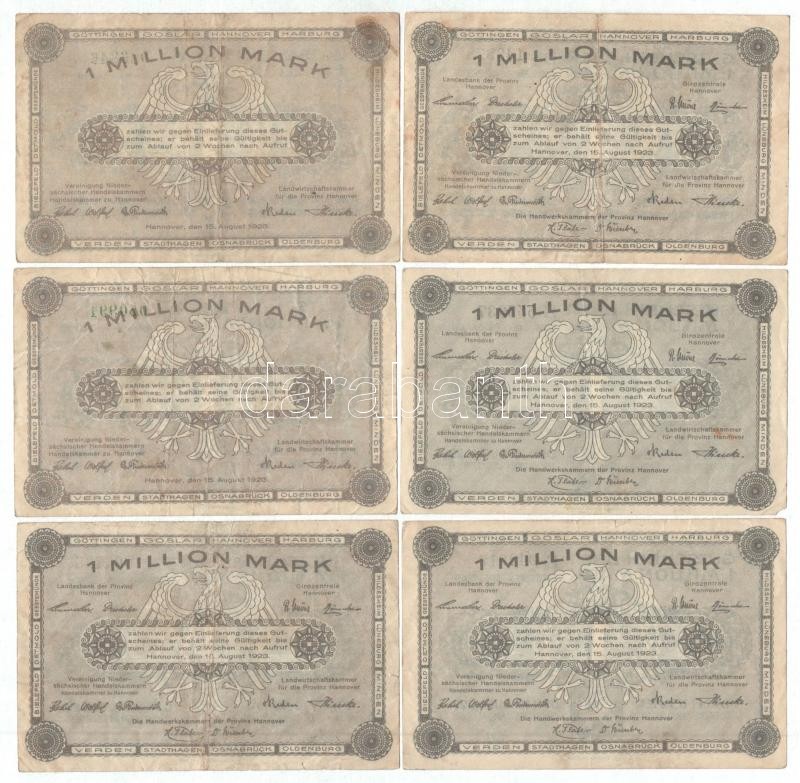 GÖTTINGEN GOSLAR HANNOVER HARBURG
1 MILLION MARK
zahlen wir gegen Einlieferung dieses Gut-
scheines; er behält seine Gültigkeit bis
zum Ablauf von 2 Wochen nach Aufruf
Vereinigung Nieder-
sächsischer Handelskammern
Handelskammer zu Hannover
Landwirtschaftskammer
für die Provinz Hannover
Hannover, den 15. August 1923.
VERDEN STADTHAGEN OSNABRÜCK OLDENBURG
BIELEFELD DETMOLD GEESTEMÜNDE
HILDESHEIM LÜNEBURG MINDEN
GÖTTINGEN GOSLAR HANNOVER HARBURG
1 MILLION MARK
Landesbank der Provinz
Hannover
Girozentrale
Hannover
zahlen wir gegen Einlieferung dieses Gut-
scheines; er behält seine Gültigkeit bis
zum Ablauf von 2 Wochen nach Aufruf
Hannover, den 15. August 1923.
Vereinigung Nieder-
sächsischer Handelskammern
Handelskammer zu Hannover
Landwirtschaftskammer
für die Provinz Hannover
Die Handwerkskammern der Provinz Hannover
VERDEN STADTHAGEN OSNABRÜCK OLDENBURG
BIELEFELD DETMOLD GEESTEMÜNDE
HILDESHEIM LÜNEBURG MINDEN
GÖTTINGEN GOSLAR HANNOVER HARBURG
1 MILLION MARK
zahlen wir gegen Einlieferung dieses Gut-
scheines; er behält seine Gültigkeit bis
zum Ablauf von 2 Wochen nach Aufruf
Vereinigung Nieder-
sächsischer Handelskammern
Handelskammer zu Hannover
Landwirtschaftskammer
für die Provinz Hannover
Hannover, den 15. August 1923.
VERDEN STADTHAGEN OSNABRÜCK OLDENBURG
BIELEFELD DETMOLD GEESTEMÜNDE
HILDESHEIM LÜNEBURG MINDEN
GÖTTINGEN GOSLAR HANNOVER HARBURG
1 MILLION MARK
Landesbank der Provinz
Hannover
Girozentrale
Hannover
zahlen wir gegen Einlieferung dieses Gut-
scheines; er behält seine Gültigkeit bis
zum Ablauf von 2 Wochen nach Aufruf
Hannover, den 15. August 1923.
Vereinigung Nieder-
sächsischer Handelskammern
Handelskammer zu Hannover
Landwirtschaftskammer
für die Provinz Hannover
Die Handwerkskammern der Provinz Hannover
VERDEN STADTHAGEN OSNABRÜCK OLDENBURG
BIELEFELD DETMOLD GEESTEMÜNDE
HILDESHEIM LÜNEBURG MINDEN
darabanth
GÖTTINGEN GOSLAR HANNOVER HARBURG
1 MILLION MARK
Landesbank der Provinz
Hannover
Girozentrale
Hannover
zahlen wir gegen Einlieferung dieses Gut-
scheines; er behält seine Gültigkeit bis
zum Ablauf von 2 Wochen nach Aufruf
Hannover, den 15. August 1923.
Vereinigung Nieder-
sächsischer Handelskammern
Handelskammer zu Hannover
Landwirtschaftskammer
für die Provinz Hannover
Die Handwerkskammern der Provinz Hannover
VERDEN STADTHAGEN OSNABRÜCK OLDENBURG
BIELEFELD DETMOLD GEESTEMÜNDE
HILDESHEIM LÜNEBURG MINDEN
GÖTTINGEN GOSLAR HANNOVER HARBURG
1 MILLION MARK
Landesbank der Provinz
Hannover
Girozentrale
Hannover
zahlen wir gegen Einlieferung dieses Gut-
scheines; er behält seine Gültigkeit bis
zum Ablauf von 2 Wochen nach Aufruf
Hannover, den 15. August 1923.
Vereinigung Nieder-
sächsischer Handelskammern
Handelskammer zu Hannover
Landwirtschaftskammer
für die Provinz Hannover
Die Handwerkskammern der Provinz Hannover
VERDEN STADTHAGEN OSNABRÜCK OLDENBURG
BIELEFELD DETMOLD GEESTEMÜNDE
HILDESHEIM LÜNEBURG MINDEN